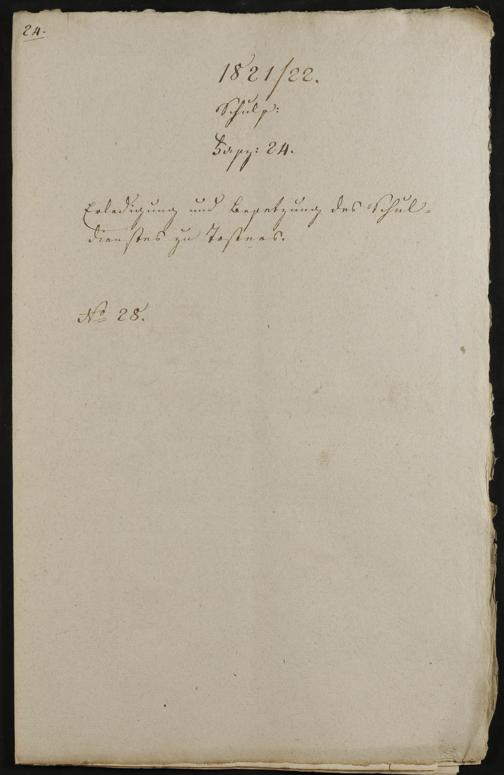 24.
1821/22.
Schul:
24.
Erledigung und Besetzung des Schul-
dienstes zu Tosters.
No 28.